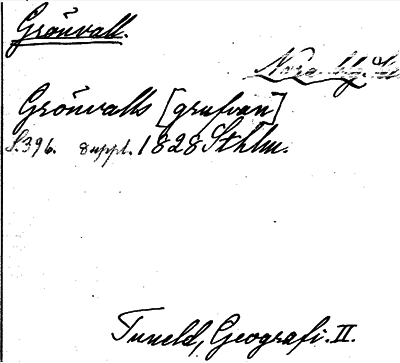 Grönvall.
Nora
Grönvalls [grufvan]
S. 396. suppl. 1828 Sthlm.
Tuneld, Geografi. II.